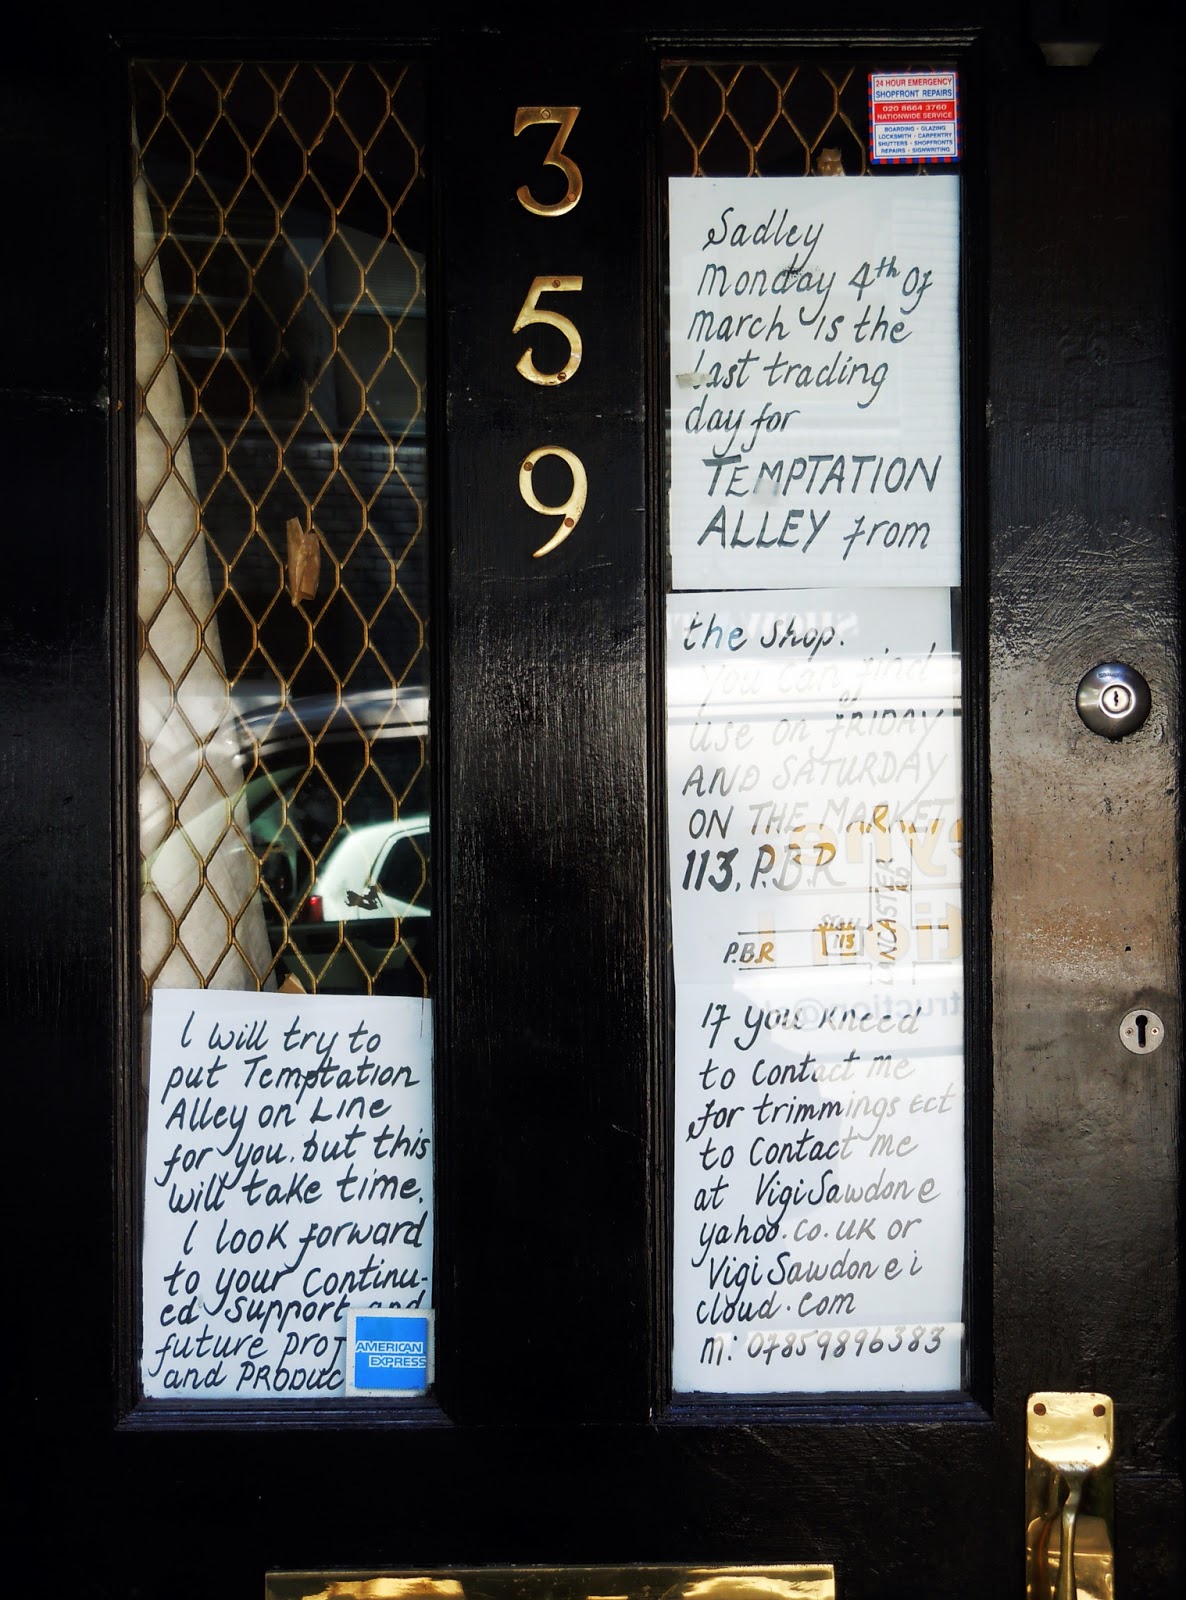 3
5
9
24 HOUR EMERGENCY
SHOPFRONT REPAIRS
020 8664 3760
NATIONWIDE SERVICE
BOARDING - GLAZING
LOCKSMITH - CARPENTRY
SHUTTERS - SHOPFRONTS
REPAIRS - SIGNWRITING
Sadley
Monday 4th Of
March is the
last trading
day for
TEMPTATION
ALLEY from
the Shop.
You can find
use on FRIDAY
AND SATURDAY
ON THE MARKET
113, P.B.R
P.B.R
STALL
113
LANCASTER
RD
If you kneed
to contact me
for trimmings ect
to contact me
at VigiSawdon e
yahoo.co.uk or
VigiSawdon e i
cloud.com
m: 07859896383
I will try to
put Temptation
Alley on LINE
for you, but this
will take time.
I look forward
to your continu-
ed support and
future Proj
and PRODUC
AMERICAN
EXPRESS